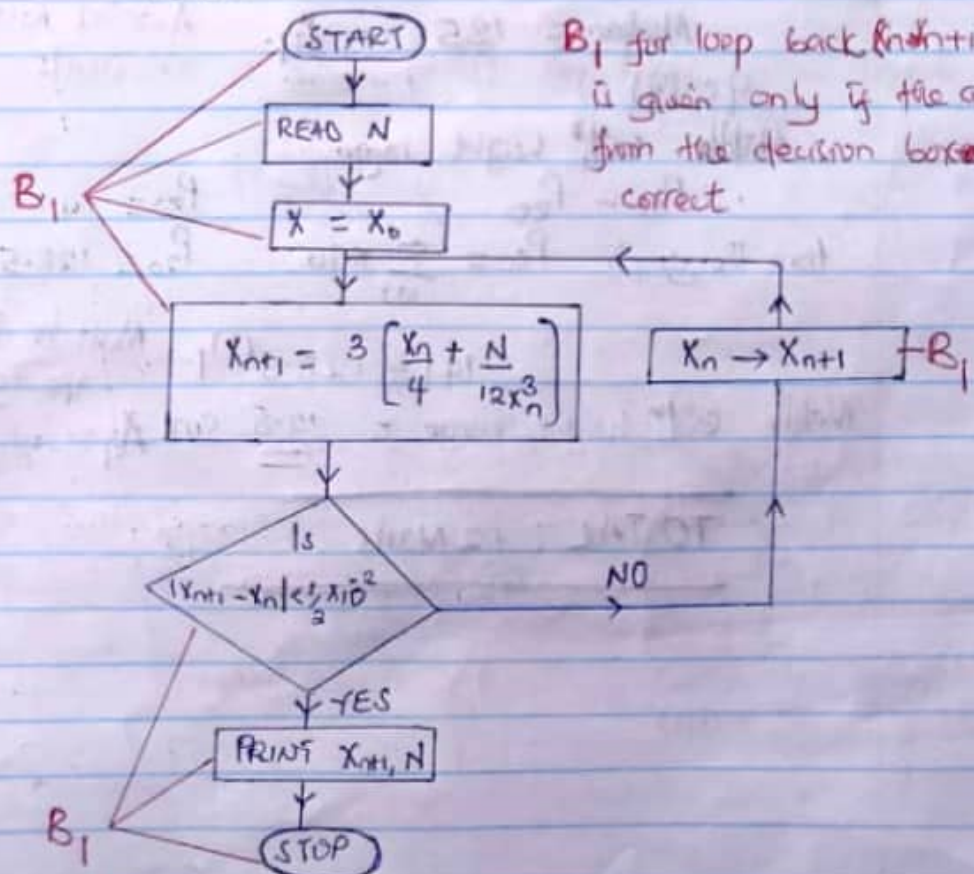 START
B₁ for loop back
is given only if the
from the decision
correct.
READ N
B₁
X = X₀
Xₙ₊₁ = 3 [Xₙ/4 + N/12xₙ³]
Xₙ → Xₙ₊₁ B₁
Is
|Xₙ₊₁ - Xₙ| < 1/2 x 10⁻²
NO
YES
PRINT Xₙ₊₁, N
B₁
STOP